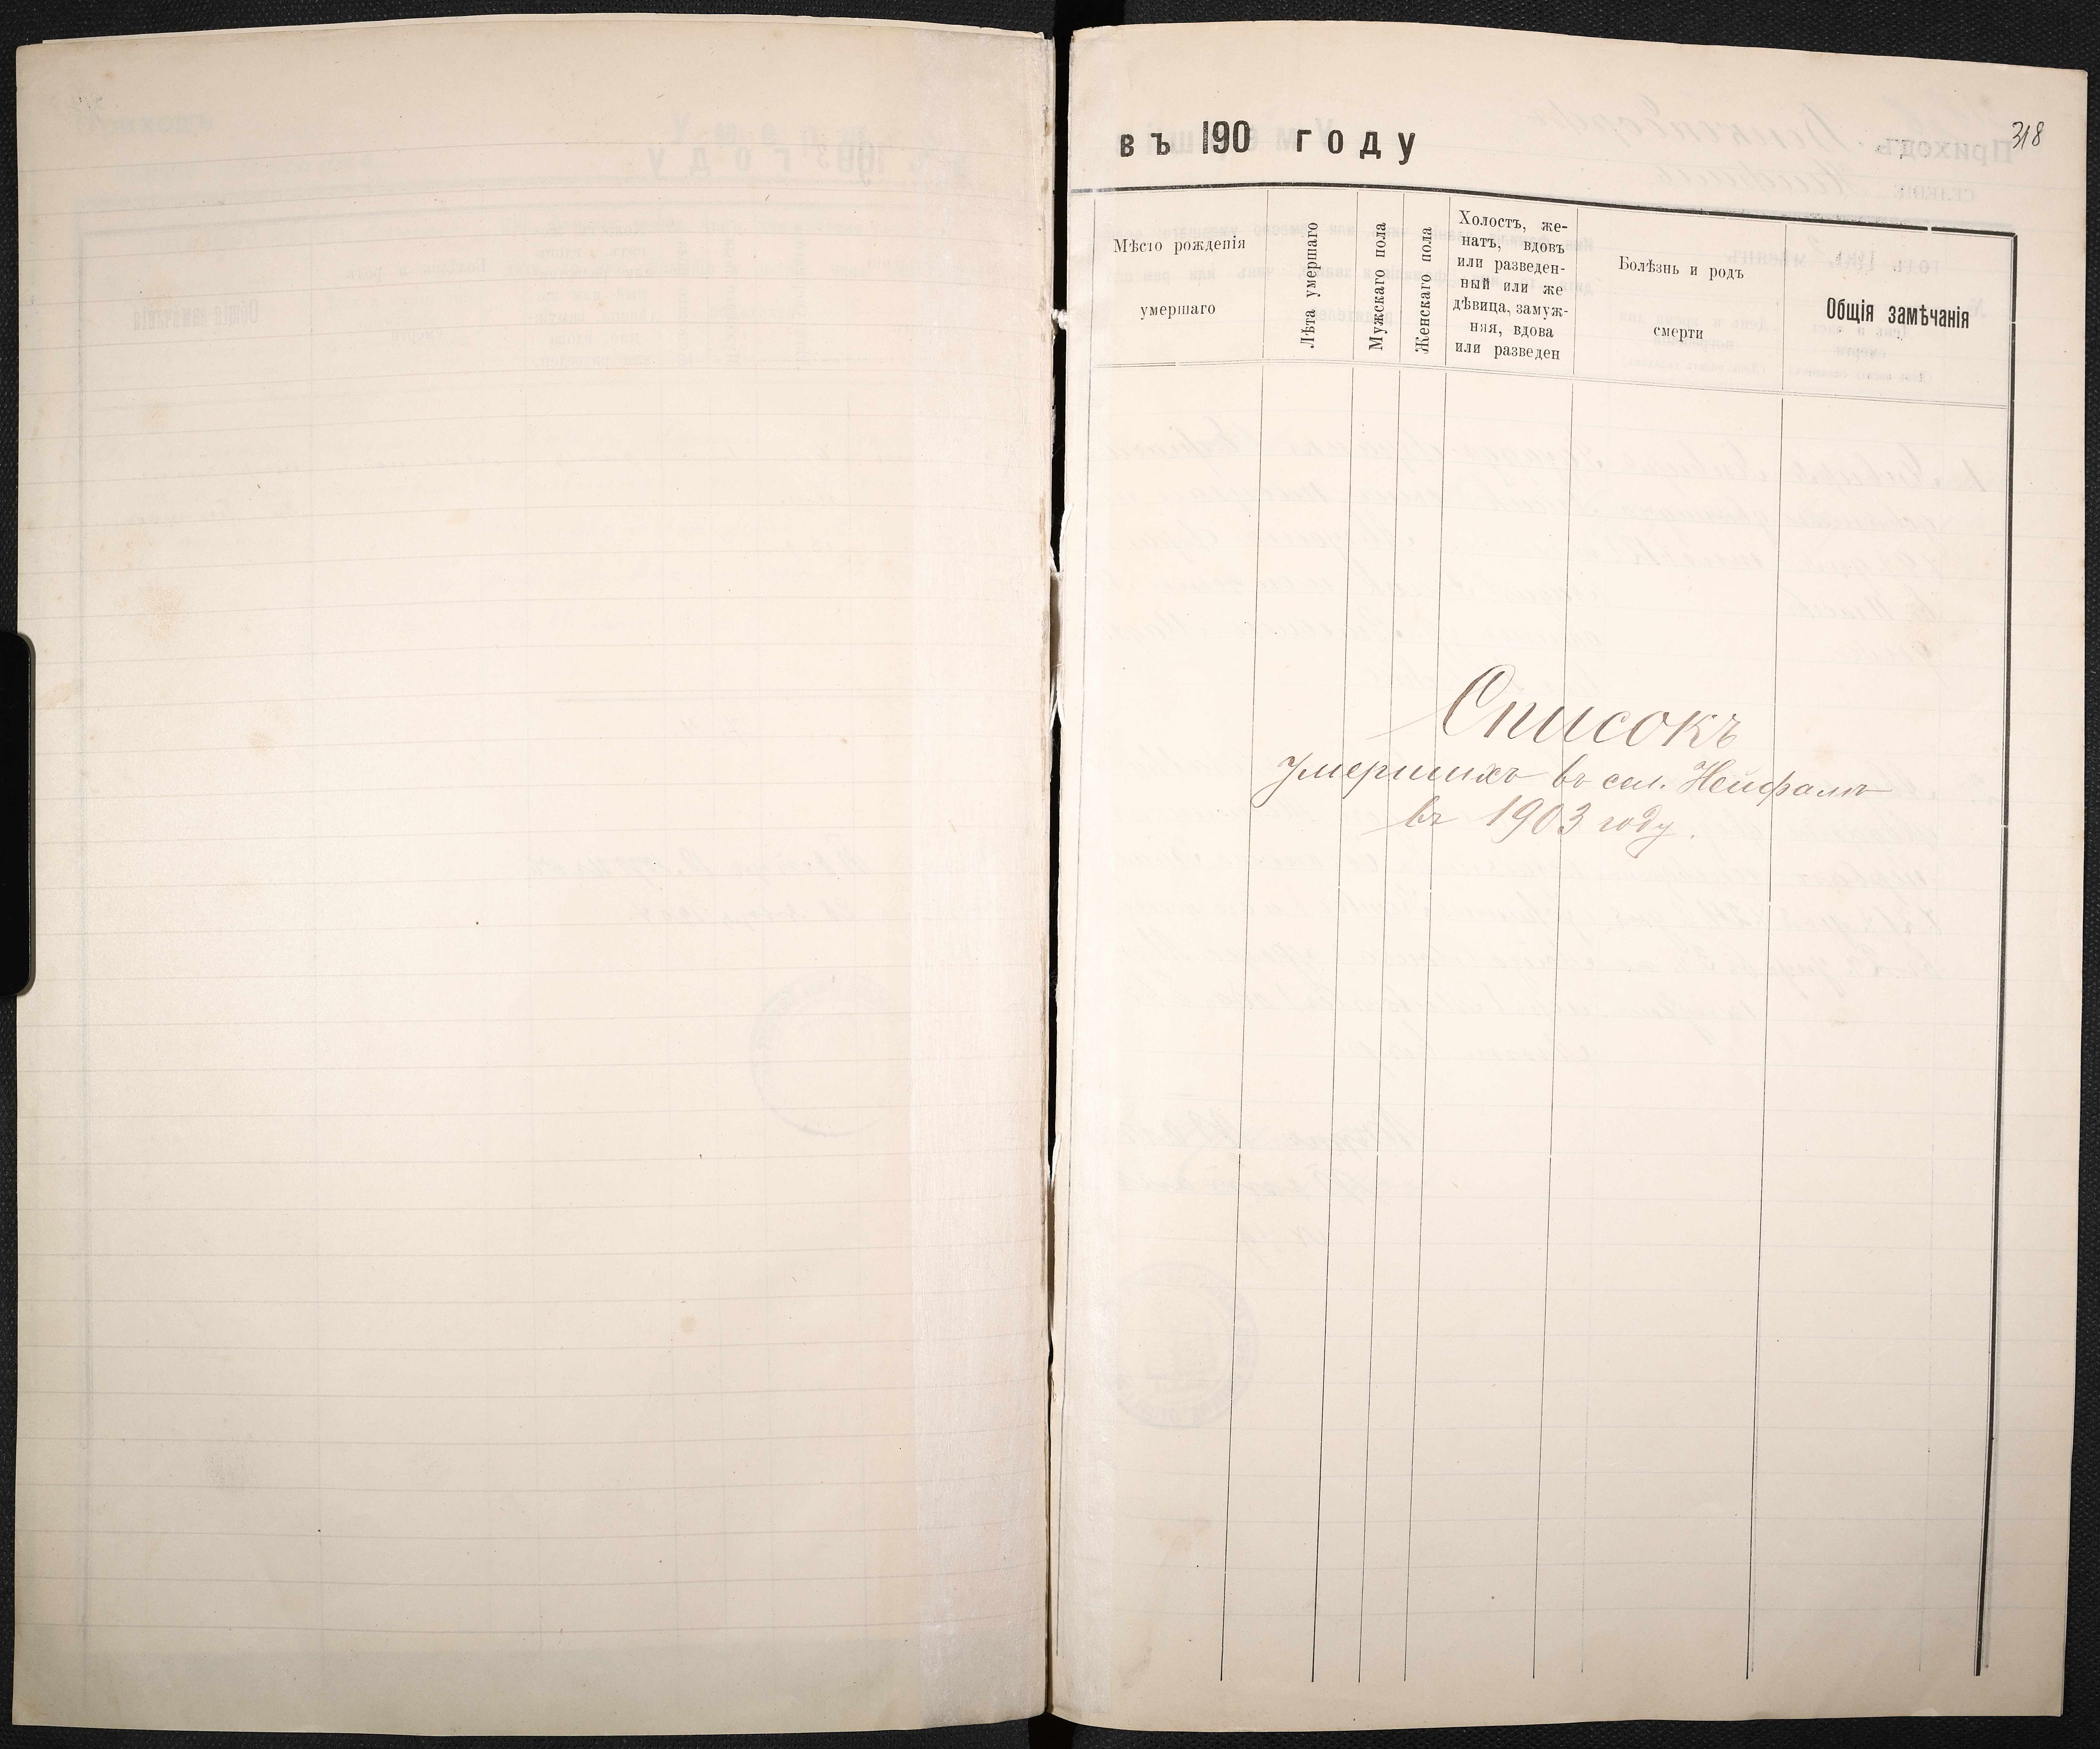 въ 190 году
318
Мѣсто рожденія
умершаго
Лѣта умершаго
Мужскаго пола
Женскаго пола
Холостъ, же-
натъ, вдовъ
или разведен-
ный или же
дѣвица, замуж-
няя, вдова
или разведен
Болѣзнь и родъ
смерти
Общія замѣчанія
Списокъ
умершихъ въ сел. Нейфалъ
въ 1903 году.